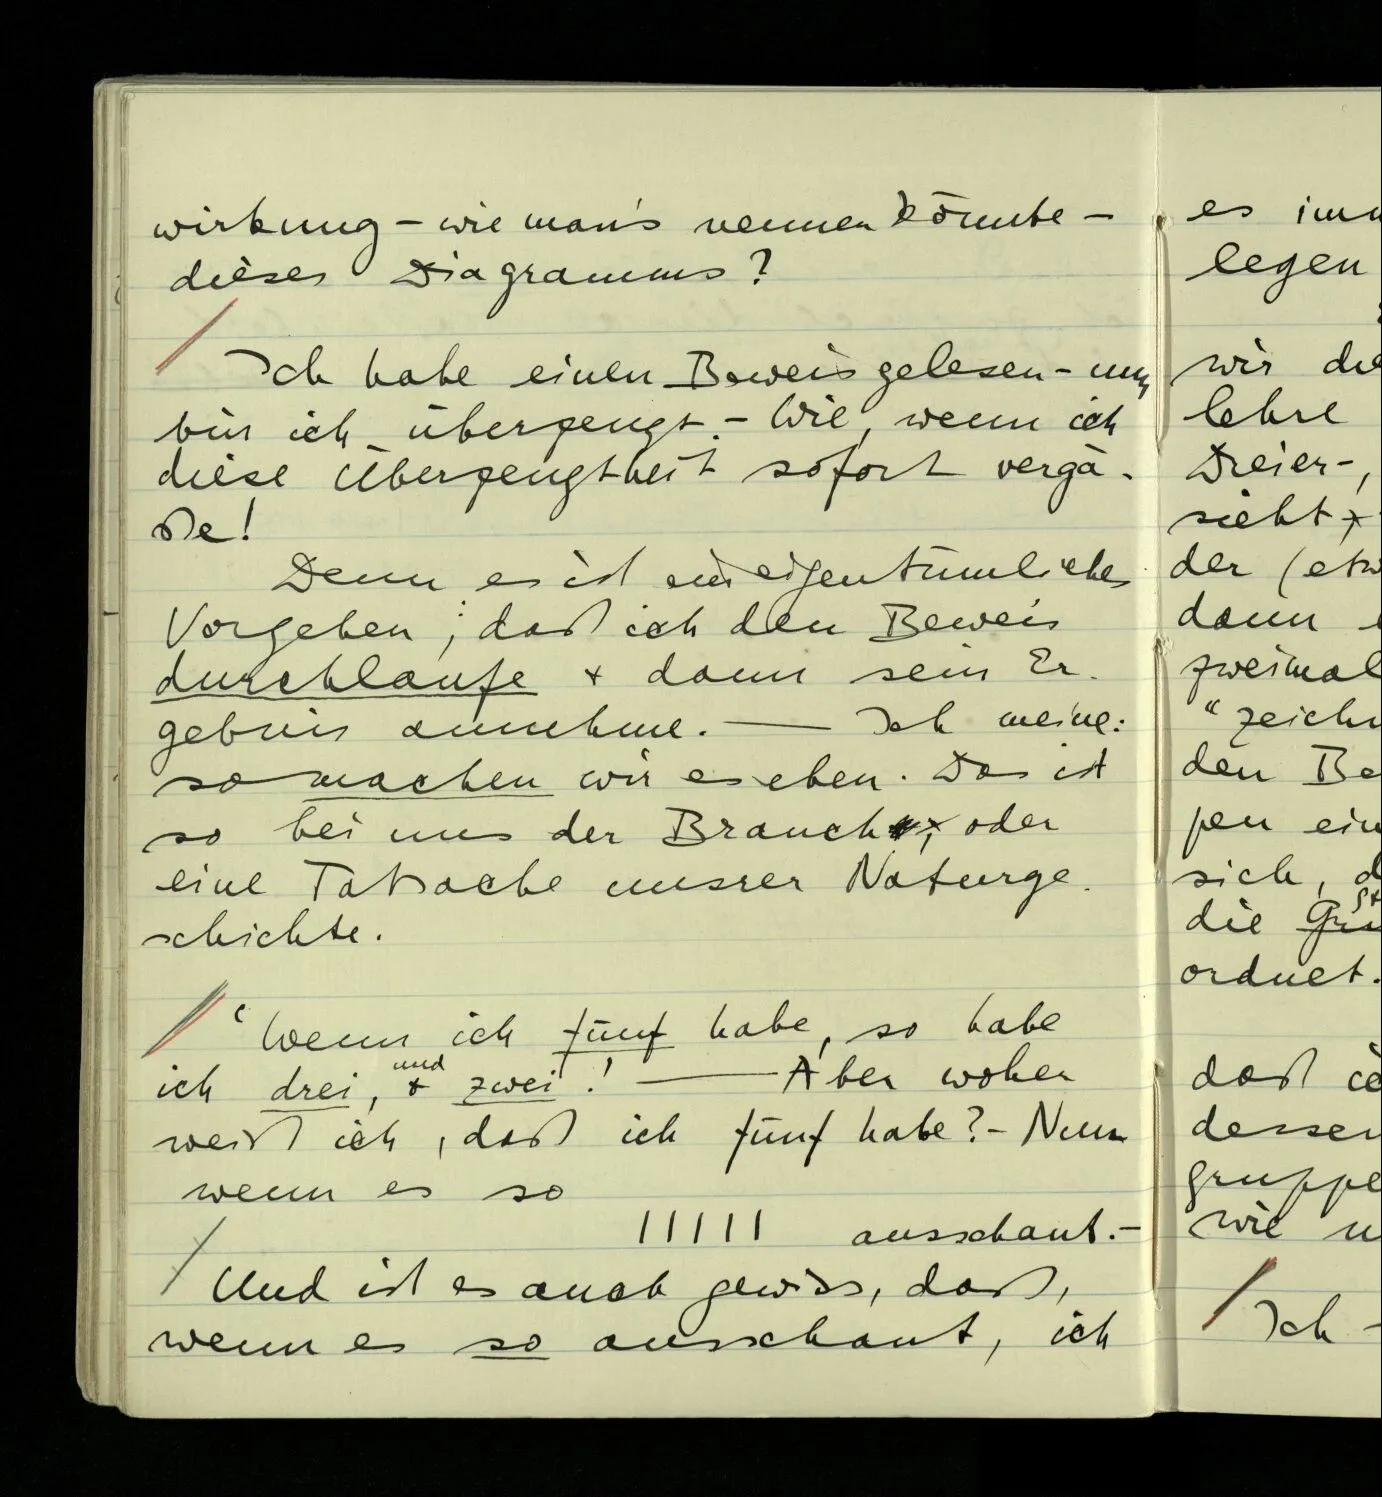 wirkung – wie man's nennen könnte –
dieses Diagramms?
Ich habe einen Beweis gelesen – nun
bin ich überzeugt. – Wie, wenn ich
diese Überzeugtheit sofort vergä-
ße!
Denn es ist ein eigentümliches
Vorgehen, daß ich den Beweis
durchlaufe + dann sein Er-
gebnis annehme. — Ich meine:
so machen wir es eben. Das ist
so bei uns der Brauch, oder
eine Tatsache unsrer Naturge-
schichte.
'Wenn ich fünf habe, so habe
ich drei, + und zwei.' — Aber woher
weiß ich, daß ich fünf habe? – Nun
wenn es so
||||| ausschaut. –
Und ist es auch gewiss, daß,
wenn es so ausschaut, ich
es
legen
wir die
lehre
Dreier-,
sieht
der (etw
dann
zweimal
"zeichn
den Be
pen ein
sich, d
die
ordnet.
daß ic
dessen
gruppe
wie u
Ich –